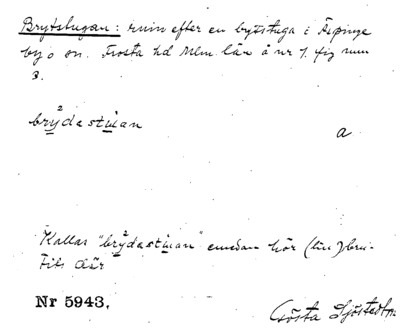 Brytstugan: ruin efter en brytstuga i Äspinge
by o sn. Frosta hd Mlm. län å nr 1. fig num
3.
brydestuan
a
Kallas "brydestuan" emedan här (lin) bru-
tits där
Nr 5943.
Gösta Sjöstedt